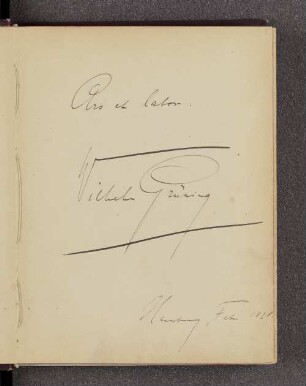 Ars et labor.
Wilhelm Grüning
Hamburg Feb